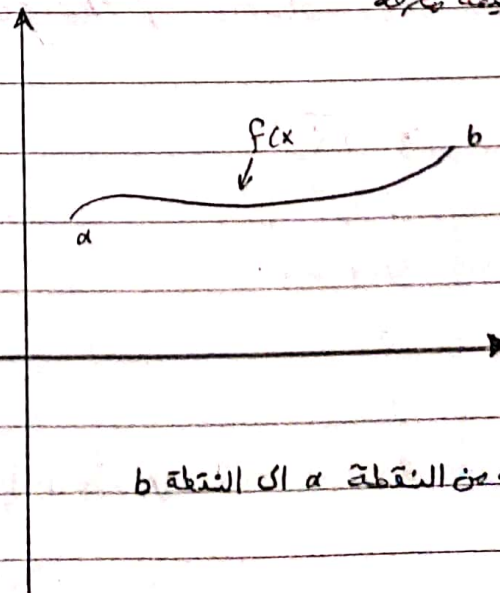 f(x
b
a
من النقطة a الى النقطة b